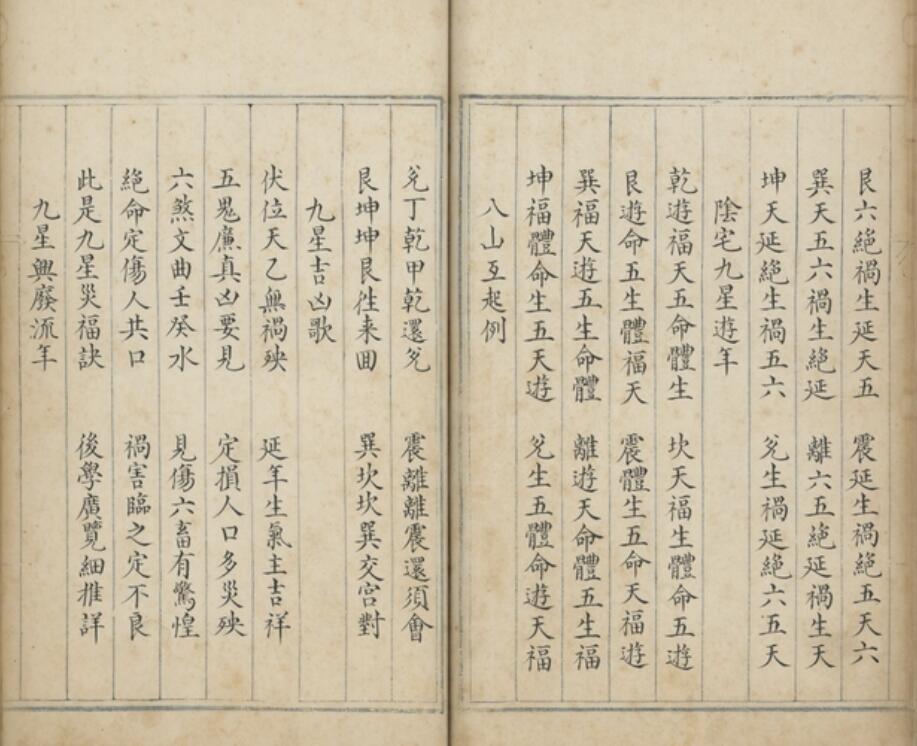 艮六絕禍生延天五　震延生禍絕五天六
巽天五六禍生絕延　離六五絕延禍生天
坤天延絕生禍五六　兌生禍延絕六五天
陰宅九星遊年
乾遊福天五命體生　坎天福生體命五遊
艮遊命五生體福天　震體生五命天福遊
巽福天遊五生命體　離遊天命體五生福
坤福體命生五天遊　兌生五體命遊天福
八山互起例
兌丁乾甲乾還兌　震離離震還須會
艮坤坤艮徃来囬　巽坎坎巽交宮對
九星吉凶歌
伏位天乙無禍殃　延年生氣主吉祥
五鬼廉真凶要見　定損人口多災殃
六煞文曲壬癸水　見傷六畜有驚惶
絕命定傷人共口　禍害臨之定不良
此是九星災福訣　後學廣覽細推詳
九星興廢流年